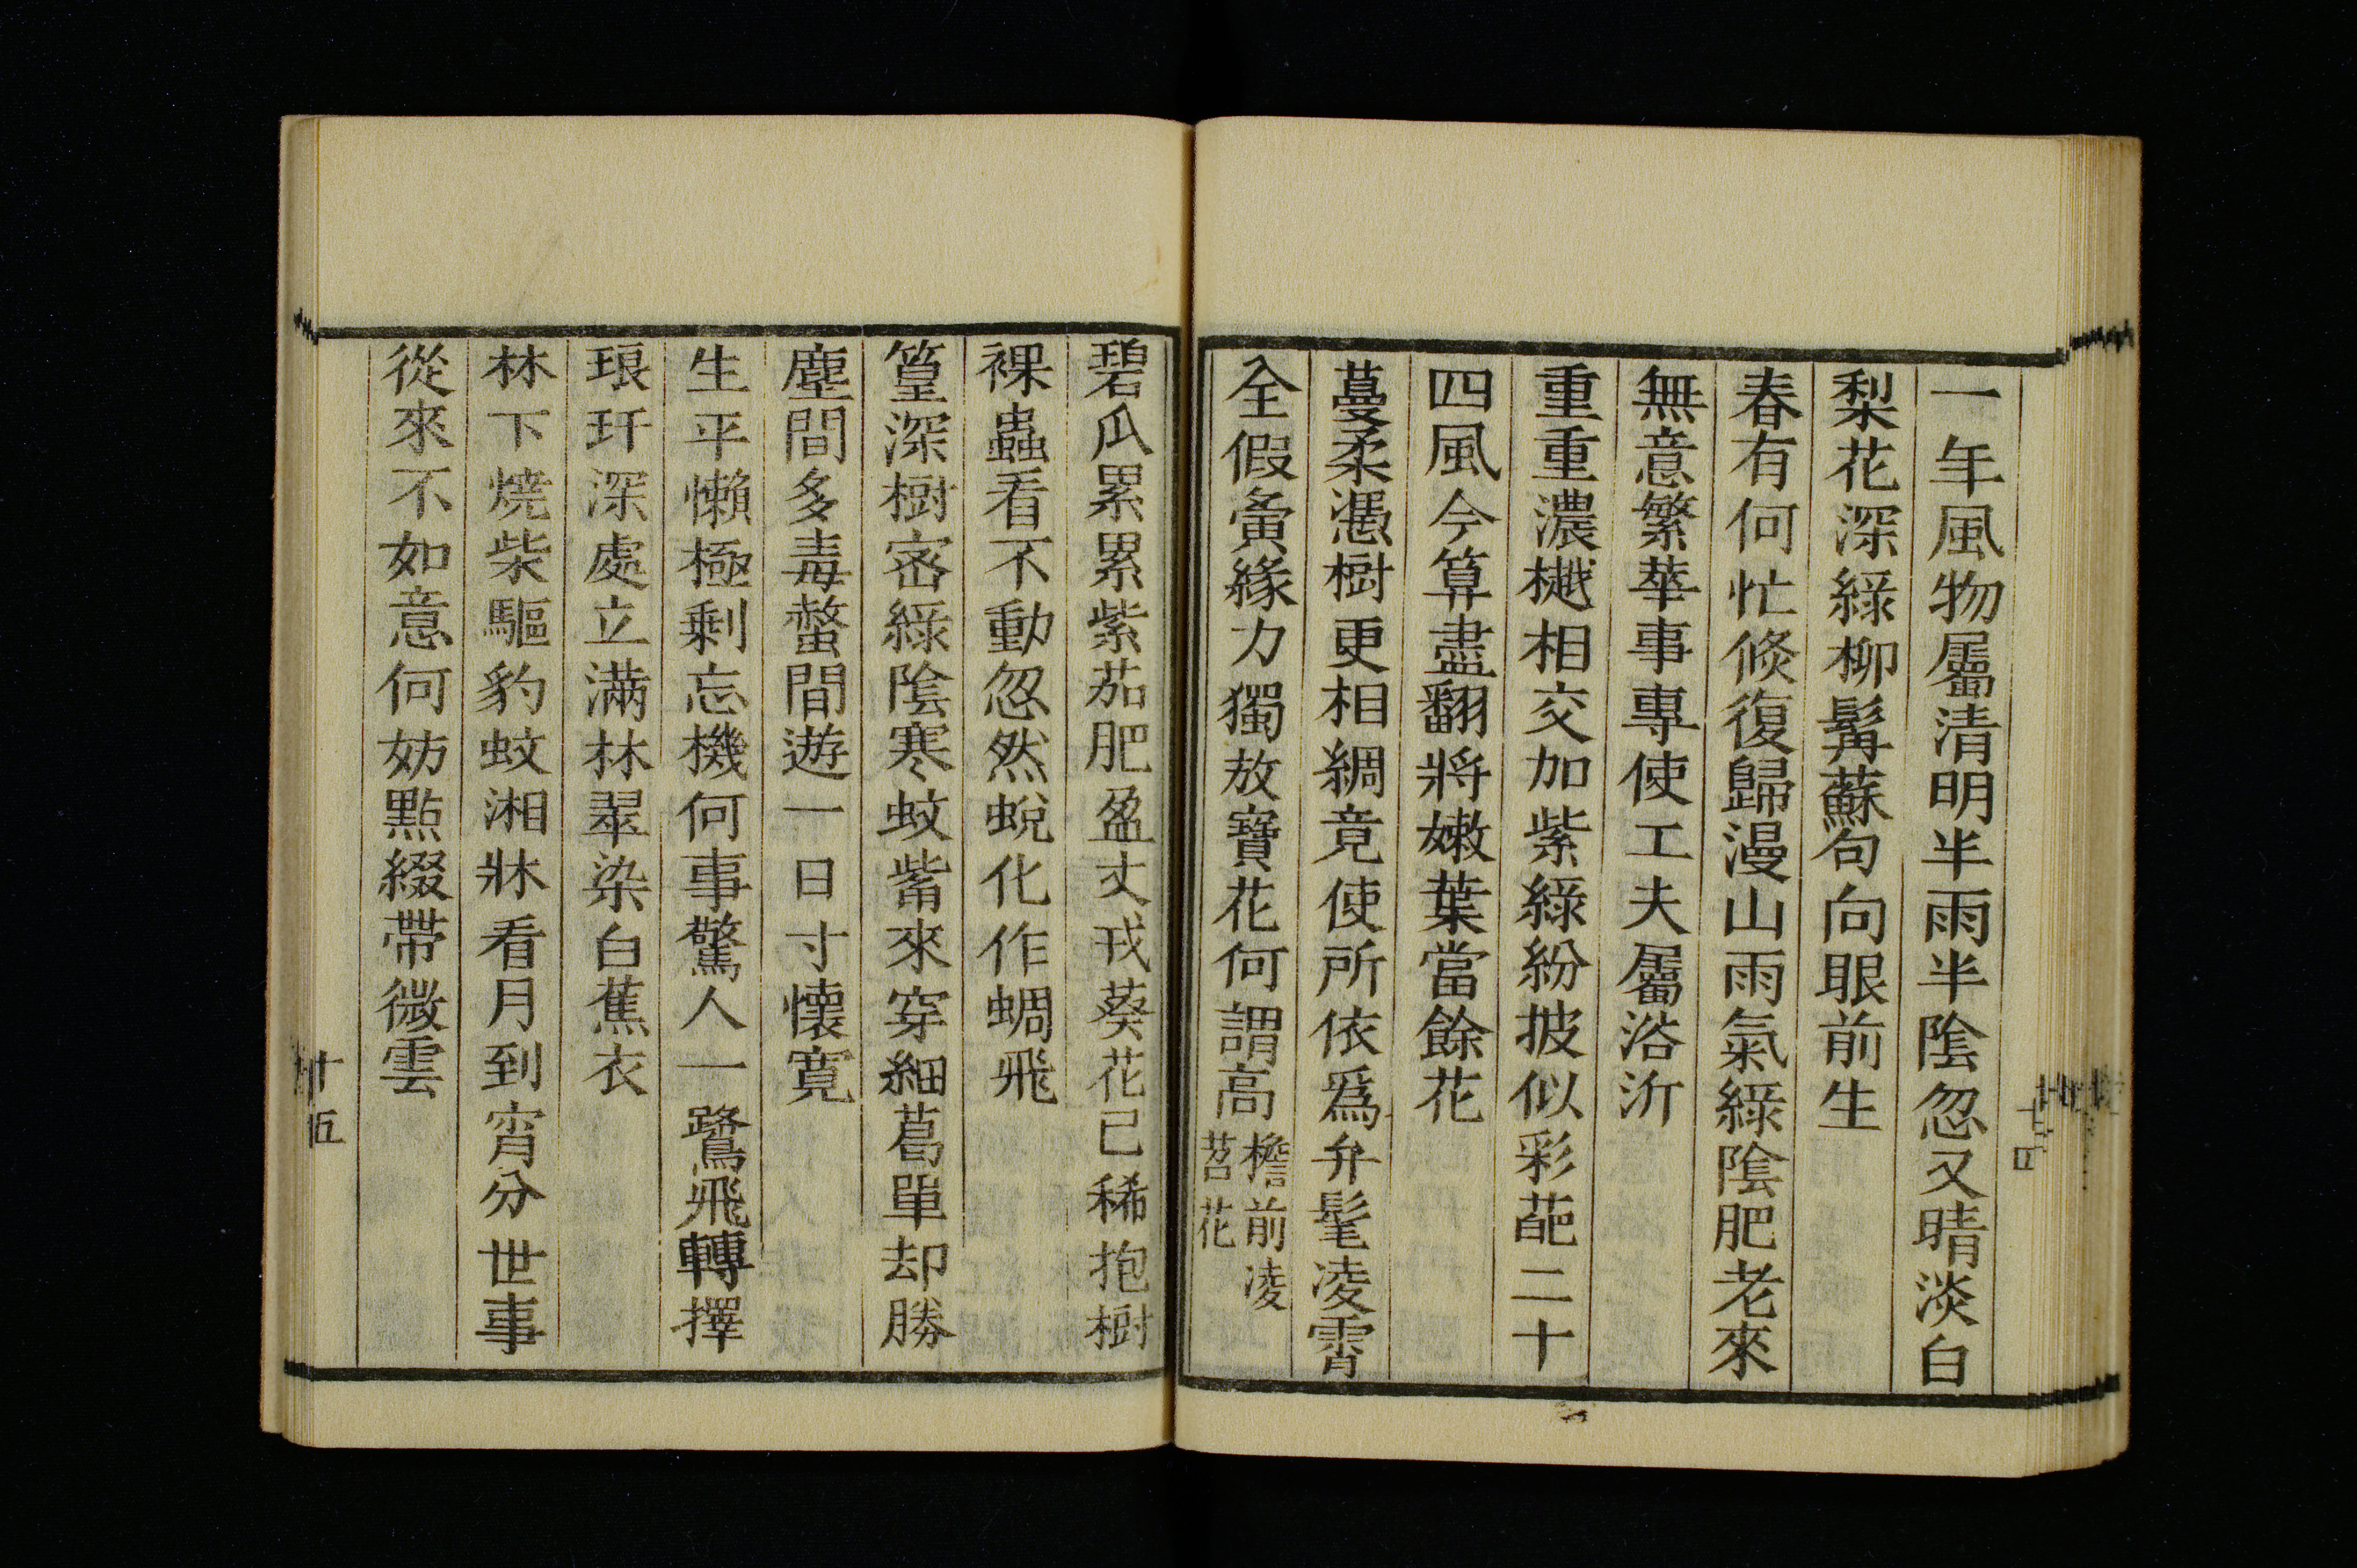 一年風物屬清明半雨半陰忽又晴淡白
梨花深綠柳髯蘇句向眼前生
春有何忙倐復歸漫山雨氣綠陰肥老來
無意繁華事專使工夫屬浴沂
重重濃樾相交加紫綠紛披似彩葩二十
四風今算盡翻將嫩葉當餘花
蔓柔憑樹更相綢竟使所依爲弁髦凌霄
全假夤緣力獨放寶花何謂高
檐前凌
苕花
碧瓜累累紫茄肥盈丈戎葵花已稀抱樹
裸蟲看不動忽然蛻化作蜩飛
篁深樹密綠陰寒蚊觜來穿細葛單却勝
塵間多毒螫間遊一日寸懷寬
生平懶極剩忘機何事驚人一鷺飛轉擇
琅玕深處立滿林翠染白蕉衣
林下燒柴驅豹蚊湘牀看月到宵分世事
從來不如意何妨點綴帶微雲
十四
十五